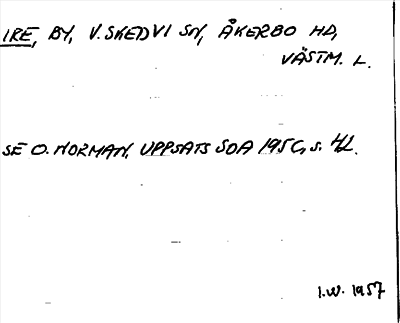 IRE, BY, V. SKEDVI SN, ÅKERBO HD,
VÄSTM. L.
SE O. NORMAN, UPPSATS SOA 1950, s.
I.W. 1957